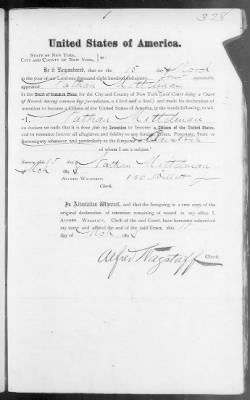 328
United States of America.
STATE OF NEW YORK,
CITY AND COUNTY OF NEW YORK, } ss:
Be it Remembered, that on the 15 day of March
in the year of our Lord one thousand eight hundred and ninety
appeared Nathan Mittelman
in the Court of Common Pleas, for the City and County of New York (said Court being a Court
of Record, having common law jurisdiction, a Clerk and a Seal) and made his declaration of
intention to become a Citizen of the United States of America, in the words following, to wit:
"I, Nathan Mittelman
do declare on oath that it is bona fide my Intention to become a Citizen of the United States,
and to renounce forever all allegiance and fidelity to any foreign Prince, Potentate, State or
Sovereignty whatever, and particularly to the
of whom I am a subject."
Sworn this 15 day of Nathan Mittelman
ALFRED WAGSTAFF,
Clerk.
In Attestation Whereof, and that the foregoing is a true copy of the
original declaration of intention remaining of record in my office, I
ALFRED WAGSTAFF, Clerk of the said Court, have hereunto subscribed
my name and affixed the seal of the said Court, this
day of
Alfred Wagstaff Clerk.